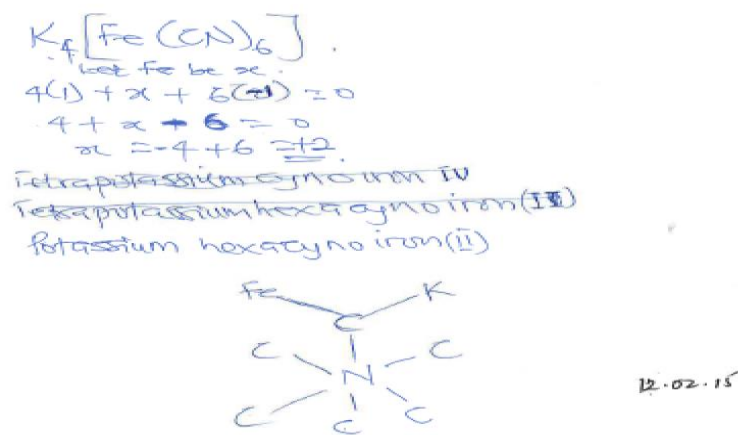 K4[Fe(CN)6].
Let Fe be x.
4(1) + x + 6(-1) = 0
4 + x - 6 = 0
x = -4 + 6 = +2.
Tetrapotassium cyno iron iv
Tetrapotassium hexa cyno iron (II)
Potassium hexacyno iron (ii)
Fe K
C
C C
N
C C
C
12.02.15